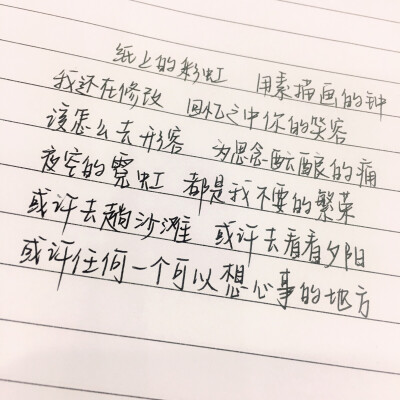 纸上的彩虹 用素描画的钟
我还在修改 回忆之中你的笑容
该怎么去形容 为思念酝酿的痛
夜空的霓虹 都是我不要的繁荣
或许去趟沙滩 或许去看看夕阳
或许任何一个可以想心事的地方